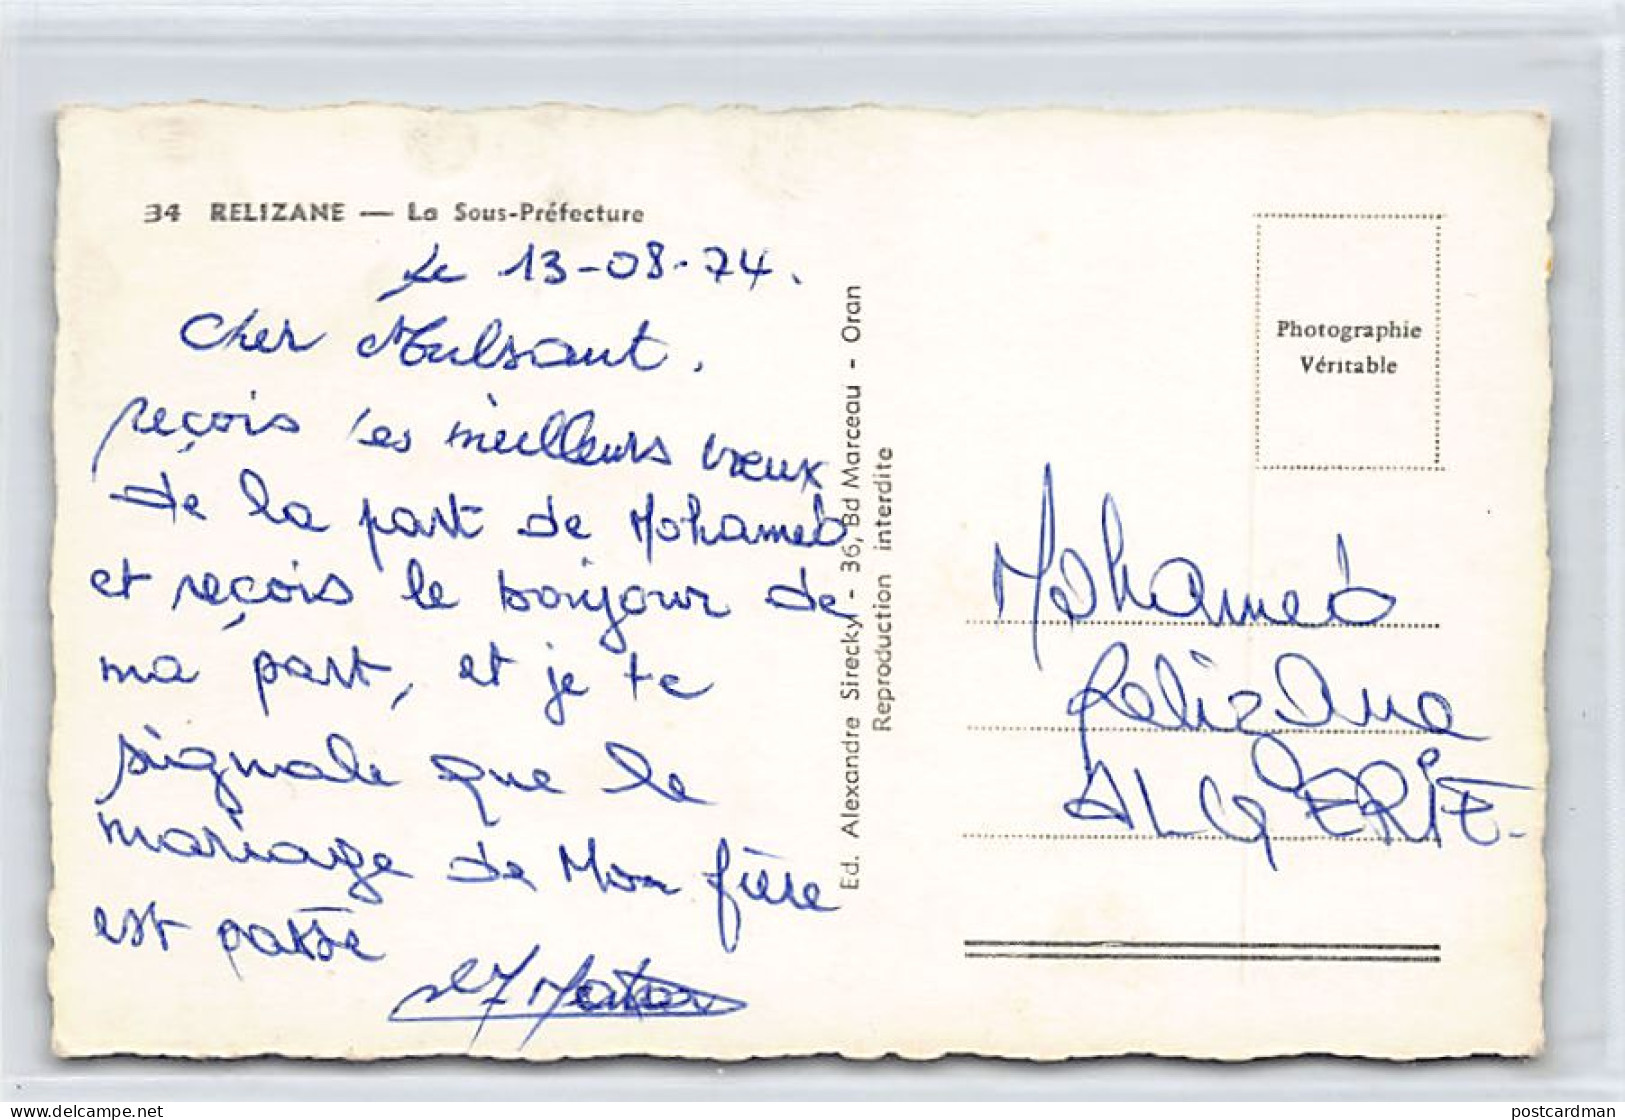 34 RELIZANE — La Sous-Préfecture
Le 13-08-74.
Cher Mulsant,
reçois les meilleurs vœux
de la part de Mohamed
et reçois le bonjour de
ma part, et je te
signale que le
mariage de Mon frère
est passé
Ed. Alexandre Sirecky - 36, Bd Marceau - Oran
Reproduction interdite
Photographie
Véritable
Mohamed
Relizane
ALGERIE-
delcampe.net
postcardman